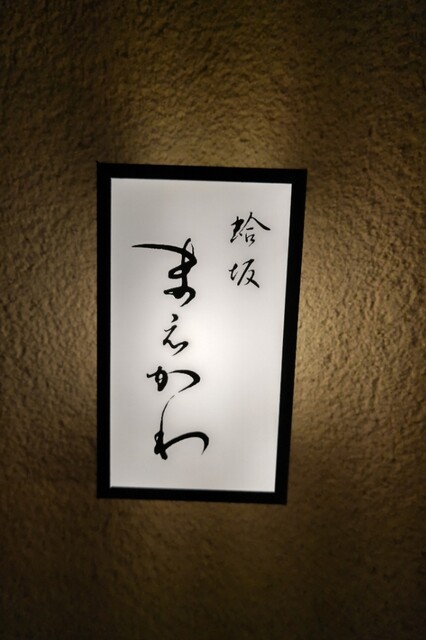 蛤坂
まえかわ